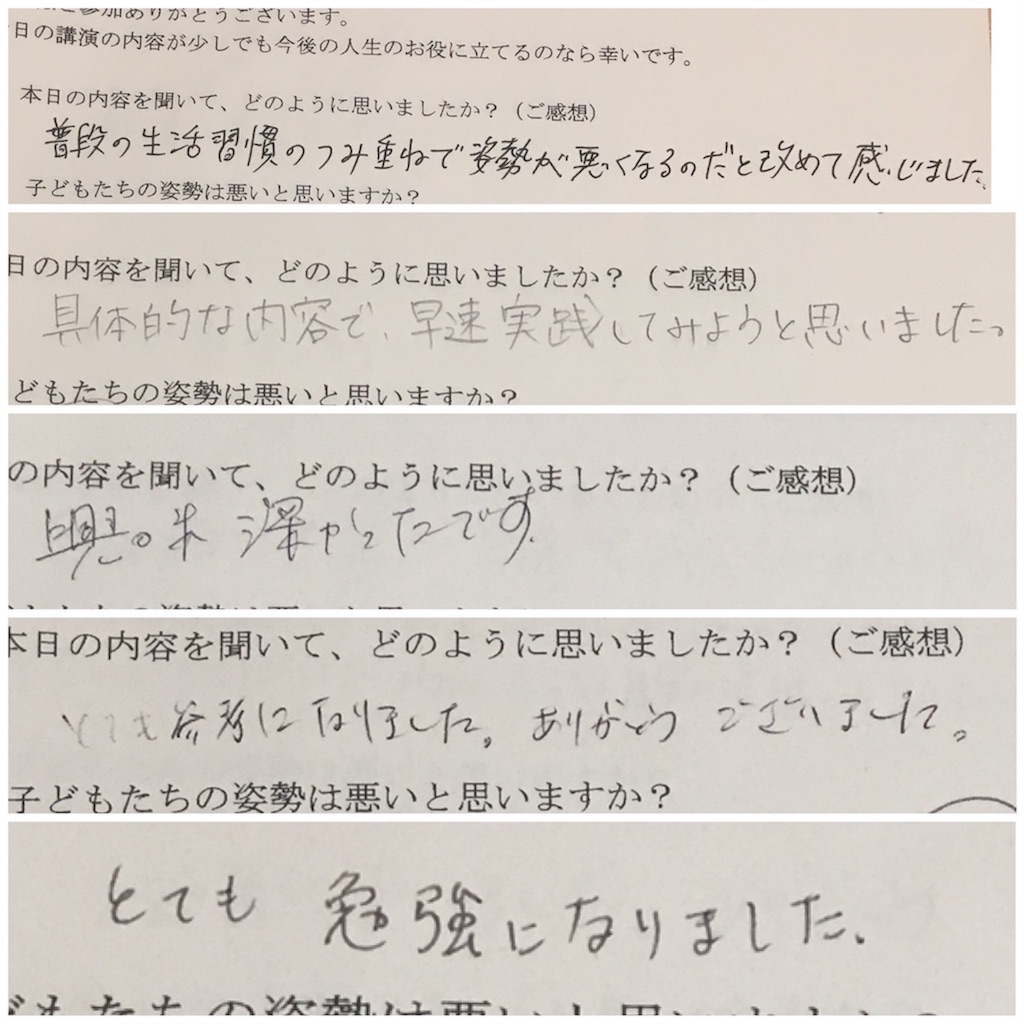 ご参加ありがとうございます。
日の講演の内容が少しでも今後の人生のお役に立てるのなら幸いです。
本日の内容を聞いて、どのように思いましたか？（ご感想）
普段の生活習慣のつみ重ねで姿勢が悪くなるのだと改めて感じました。
子どもたちの姿勢は悪いと思いますか？
日の内容を聞いて、どのように思いましたか？（ご感想）
具体的な内容で、早速実践してみようと思いました。
どもたちの姿勢は悪いと思いますか？
の内容を聞いて、どのように思いましたか？（ご感想）
興味深かったです。
本日の内容を聞いて、どのように思いましたか？（ご感想）
とても参考になりました。ありがとうございました。
子どもたちの姿勢は悪いと思いますか？
とても勉強になりました。
どもたちの姿勢は悪いと思いますか？